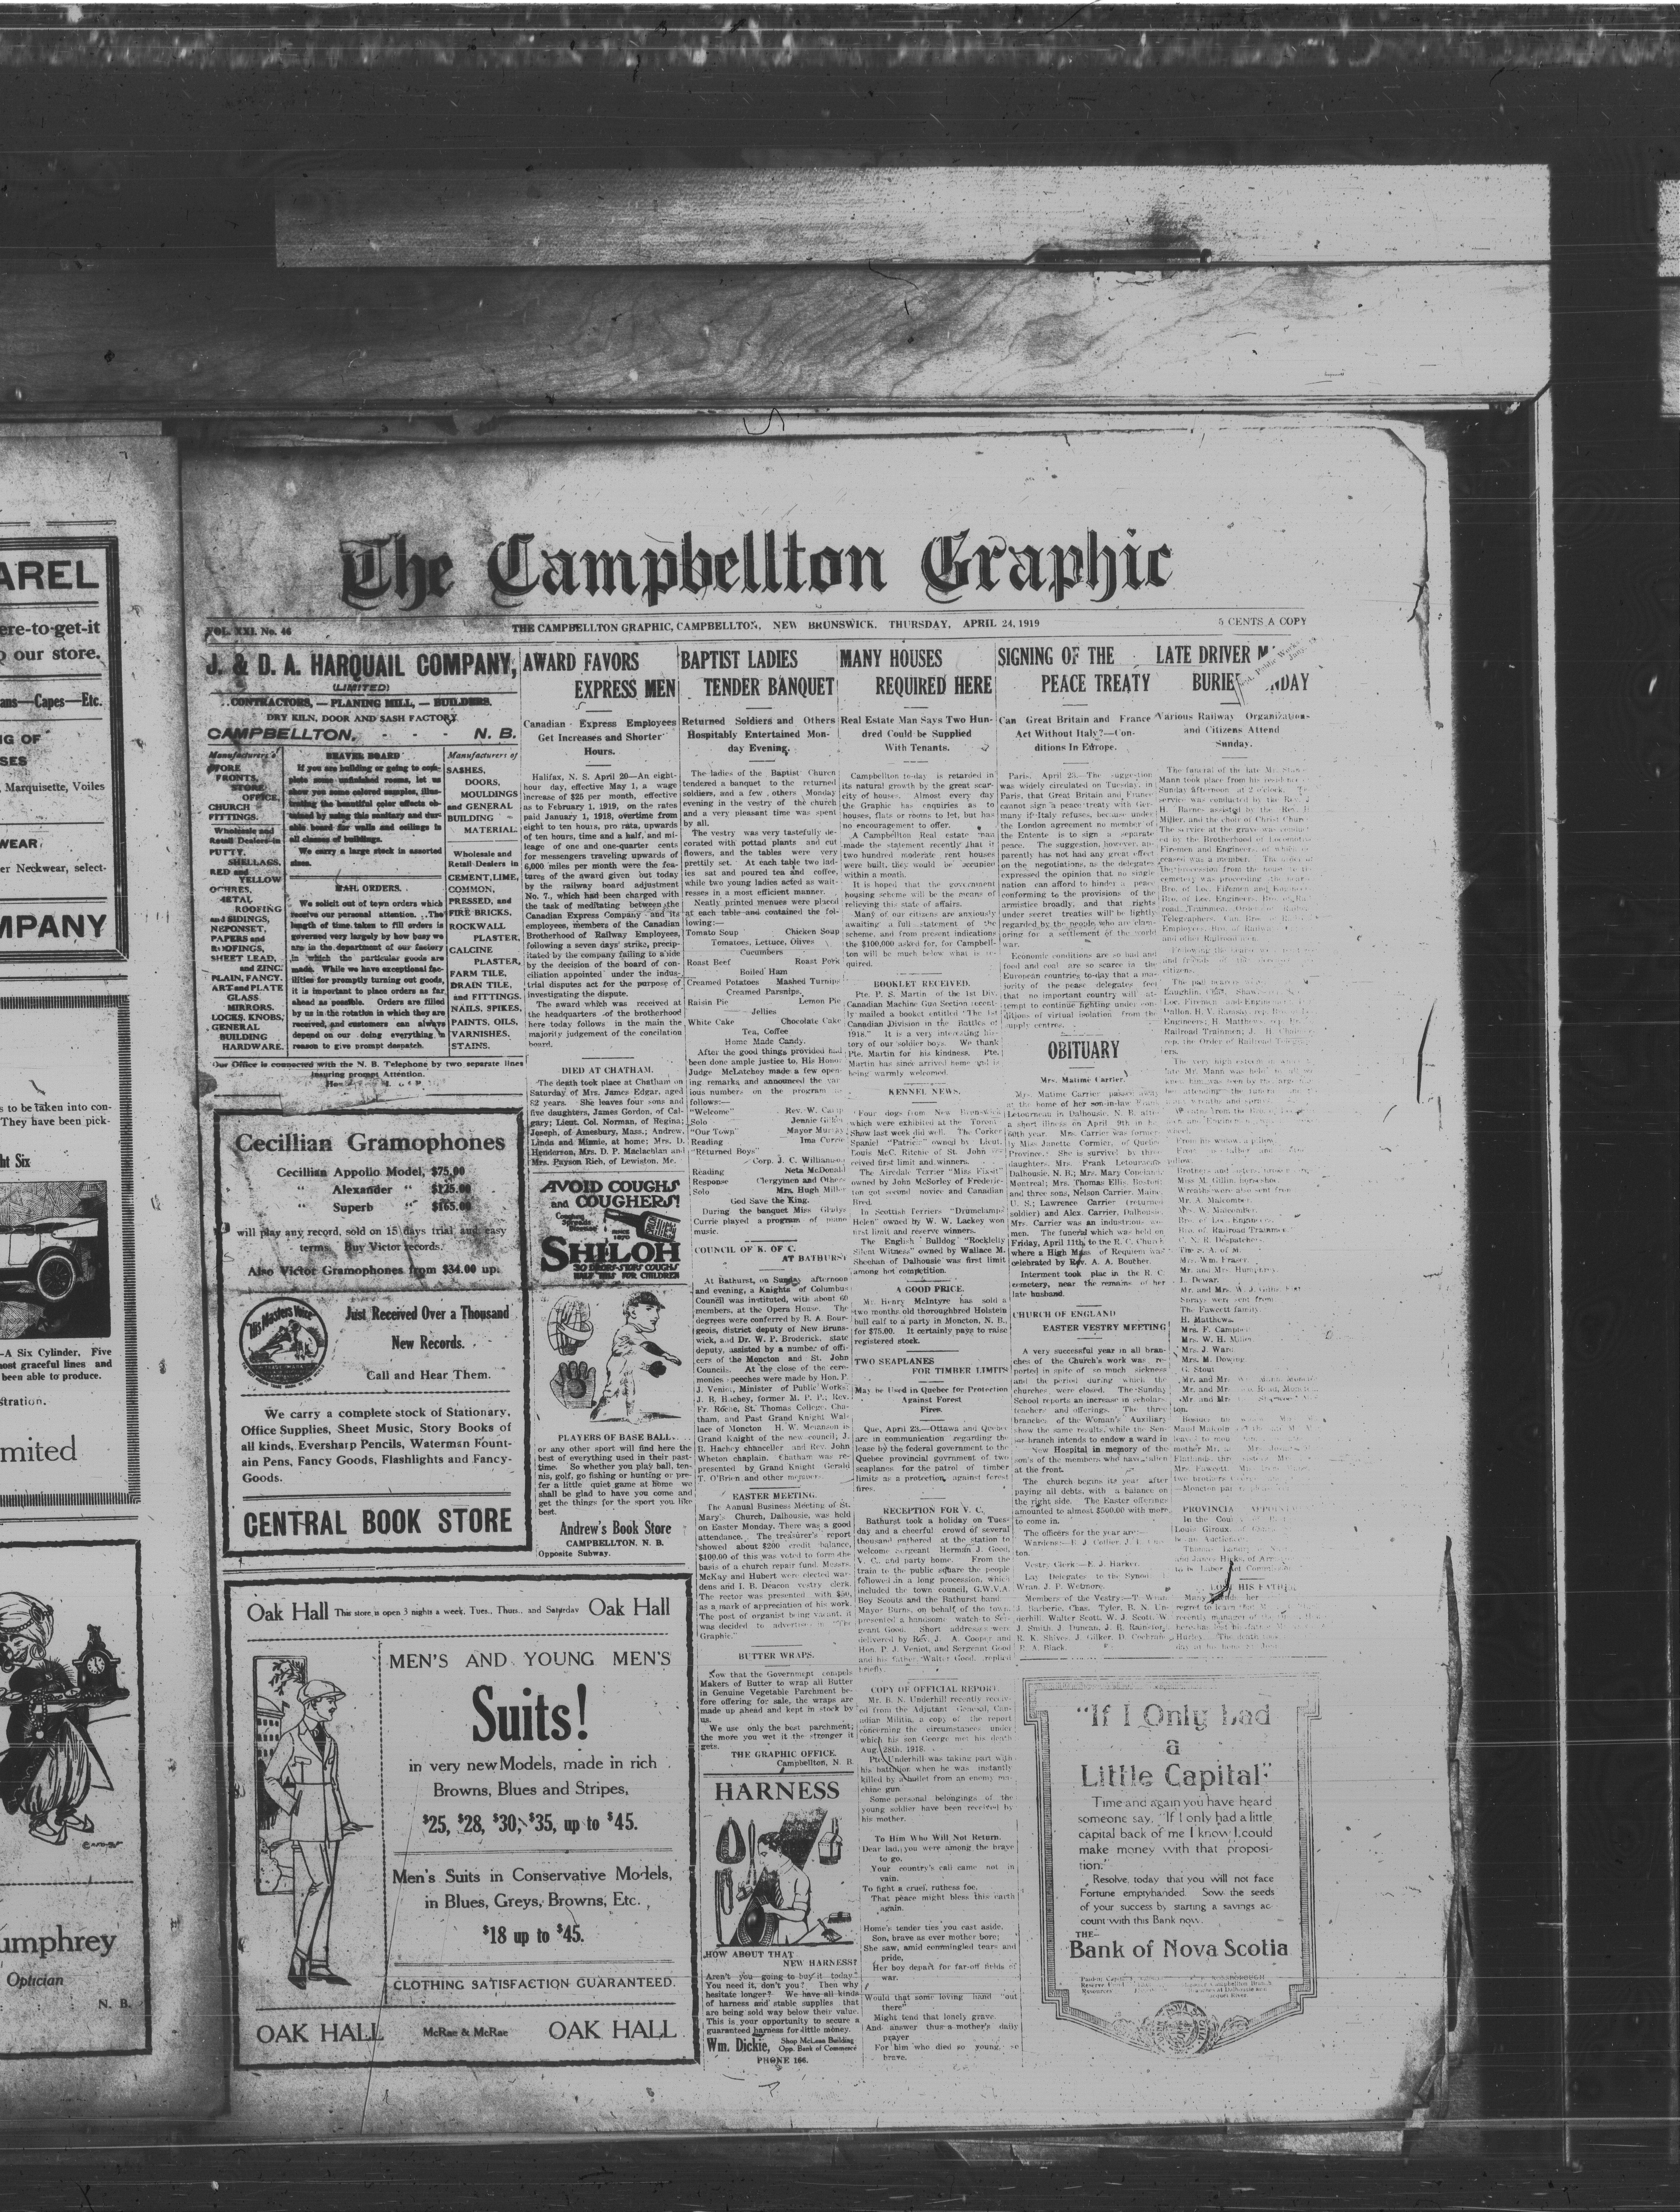 AREL
ere-to-get-it
our store.
ans—Capes—Etc.
G OF
SES
Marquisette, Voiles
WEAR
er Neckwear, select-
MPANY
s to be taken into con-
They have been pick-
ht Six
—A Six Cylinder, Five
most graceful lines and
been able to produce.
stration.
mited
umphrey
Optician
N. B.
The Campbellton Graphic
VOL. XXI. No. 46
THE CAMPBELLTON GRAPHIC, CAMPBELLTON, NEW BRUNSWICK, THURSDAY, APRIL 24, 1919
5 CENTS A COPY
J. & D. A. HARQUAIL COMPANY,
(LIMITED)
CONTRACTORS, — PLANING MILL, — BUILDERS.
DRY KILN, DOOR AND SASH FACTORY
CAMPBELLTON, - - - N. B.
Manufacturers of
STORE
FRONTS,
STORE
OFFICE,
CHURCH
FITTINGS.
Wholesale and
Retail Dealers in
PUTTY,
SHELLACS,
RED and
YELLOW
OCHRES,
METAL
ROOFING
and SIDINGS,
NEPONSET,
PAPERS and
ROOFINGS,
SHEET LEAD,
and ZINC.
PLAIN, FANCY.
ART and PLATE
GLASS
MIRRORS.
LOCKS, KNOBS,
GENERAL
BUILDING
HARDWARE.
BEAVER BOARD
If you are building or going to com-
plete some unfinished rooms, let us
show you some colored samples, illus-
trating the beautiful color effects ob-
tained by using this sanitary and dur-
able board for walls and ceilings in
all classes of buildings.
We carry a large stock in assorted
sizes.
MAIL ORDERS.
We solicit out of town orders which
receive our personal attention. The
length of time taken to fill orders is
governed very largely by how busy we
are in the department of our factory
in which the particular goods are
made. While we have exceptional fac-
ilities for promptly turning out goods,
it is important to place orders as far
ahead as possible. Orders are filled
by us in the rotation in which they are
received, and customers can always
depend on our doing everything in
reason to give prompt despatch.
Manufacturers of
SASHES,
DOORS,
MOULDINGS
and GENERAL
BUILDING
MATERIAL.
Wholesale and
Retail Dealers in
CEMENT, LIME,
COMMON,
PRESSED, and
FIRE BRICKS,
ROCKWALL
PLASTER,
CALCINE
PLASTER,
FARM TILE,
DRAIN TILE,
and FITTINGS.
NAILS, SPIKES,
PAINTS, OILS,
VARNISHES.
STAINS.
Our Office is connected with the N. B. Telephone by two separate lines
insuring prompt Attention.
Cecillian Gramophones
Cecillian Appollo Model, $75.00
" Alexander " $125.00
" Superb " $165.00
will play any record, sold on 15 days trial and easy
terms. Buy Victor records.
Also Victor Gramophones from $34.00 up.
His Masters Voice
Just Received Over a Thousand
New Records.
Call and Hear Them.
We carry a complete stock of Stationary,
Office Supplies, Sheet Music, Story Books of
all kinds, Eversharp Pencils, Waterman Fount-
ain Pens, Fancy Goods, Flashlights and Fancy
Goods.
CENTRAL BOOK STORE
Oak Hall This store is open 3 nights a week, Tues., Thurs., and Saturday Oak Hall
MEN'S AND YOUNG MEN'S
Suits!
in very new Models, made in rich
Browns, Blues and Stripes,
$25, $28, $30, $35, up to $45.
Men's Suits in Conservative Models,
in Blues, Greys, Browns, Etc.,
$18 up to $45.
CLOTHING SATISFACTION GUARANTEED.
OAK HALL McRae & McRae OAK HALL
AWARD FAVORS
EXPRESS MEN
Canadian Express Employees
Get Increases and Shorter
Hours.
Halifax, N. S. April 20—An eight-
hour day, effective May 1, a wage
increase of $25 per month, effective
as to February 1, 1919, on the rates
paid January 1, 1918, overtime from
eight to ten hours, pro rata, upwards
of ten hours, time and a half, and mi-
leage of one and one-quarter cents
for messengers traveling upwards of
6,000 miles per month were the fea-
tures of the award given out today
by the railway board adjustment
No. 7, which had been charged with
the task of meditating between the
Canadian Express Company and its
employees, members of the Canadian
Brotherhood of Railway Employees,
following a seven days' strike, precip-
itated by the company failing to abide
by the decision of the board of con-
ciliation appointed under the indus-
trial disputes act for the purpose of
investigating the dispute.
The award which was received at
the headquarters of the brotherhood
here today follows in the main the
majority judgement of the concilation
board.
DIED AT CHATHAM.
The death took place at Chatham on
Saturday of Mrs. James Edgar, aged
62 years. She leaves four sons and
five daughters, James Gordon, of Cal-
gary; Lieut. Col. Norman, of Regina;
Joseph, of Amesbury, Mass.; Andrew,
Linda and Minnie, at home; Mrs. D.
Henderson, Mrs. D. P. Maclachlan and
Mrs. Payson Rich, of Lewiston, Me.
AVOID COUGHS
and COUGHERS!
Coughing
Spreads
Disease
SINCE
1870
SHILOH
30 DROPS-STOPS COUGHS
HALF THIS FOR CHILDREN
PLAYERS OF BASE BALL
or any other sport will find here the
best of everything used in their past-
time. So whether you play ball, ten-
nis, golf, go fishing or hunting or pre-
fer a little quiet game at home we
shall be glad to have you come and
get the things for the sport you like
best.
Andrew's Book Store
CAMPBELLTON, N. B.
Opposite Subway.
BAPTIST LADIES
TENDER BANQUET
Returned Soldiers and Others
Hospitably Entertained Mon-
day Evening.
The ladies of the Baptist Church
tendered a banquet to the returned
soldiers, and a few others, Monday
evening in the vestry of the church
and a very pleasant time was spent
by all.
The vestry was very tastefully de-
corated with pottad plants and cut
flowers, and the tables were very
prettily set. At each table two lad-
ies sat and poured tea and coffee,
while two young ladies acted as wait-
resses in a most efficient manner.
Neatly printed menues were placed
at each table and contained the fol-
lowing:—
Tomato Soup Chicken Soup
Tomatoes, Lettuce, Olives
Cucumbers
Roast Beef Roast Pork
Boiled Ham
Creamed Potatoes Mashed Turnips
Creamed Parsnips,
Raisin Pie Lemon Pie
Jellies
White Cake Chocolate Cake
Tea, Coffee
Home Made Candy.
After the good things provided had
been done ample justice to, His Honor
Judge McLatchey made a few open-
ing remarks and announced the var
ious numbers on the program as
follows:—
"Welcome" Rev. W. Camp
Solo Jennie
"Our Town" Mayor Murray
Reading Ima Currie
"Returned Boys"
Corp. J. C. Williamson
Reading Neta McDonald
Response Clergymen and Others
Solo Mrs. Hugh Miller
God Save the King.
During the banquet Miss Gladys
Currie played a program of piano
music.
COUNCIL OF K. OF C.
AT BATHURST
At Bathurst, on Sunday afternoon
and evening, a Knights of Columbus
Council was instituted, with about 60
members, at the Opera House. The
degrees were conferred by R. A. Bour-
geois, district deputy of New Bruns-
wick, and Dr. W. P. Broderick, state
deputy, assisted by a number of offi-
cers of the Moncton and St. John
Councils. At the close of the cere-
monies speeches were made by Hon. P.
J. Veniot, Minister of Public Works,
J. B. Hachey, former M. P. P., Rev.
Fr. Roche, St. Thomas College, Cha-
tham, and Past Grand Knight Wal-
lace of Moncton. H. W. Melanson is
Grand Knight of the new council; J.
B. Hachey chanceller and Rev. John
Wheton chaplain. Chatham was re-
presented by Grand Knight Gerald
T. O'Brien and other members.
EASTER MEETING.
The Annual Business Meeting of St.
Mary's Church, Dalhousie, was held
on Easter Monday. There was a good
attendance. The treasurer's report
showed about $200 credit balance,
$100.00 of this was voted to form the
basis of a church repair fund. Messrs.
McKay and Hubert were elected war-
dens and I. B. Deacon vestry clerk.
The rector was presented with $50,
as a mark of appreciation of his work.
The post of organist being vacant, it
was decided to advertise in "The
Graphic."
BUTTER WRAPS.
Now that the Government compels
Makers of Butter to wrap all Butter
in Genuine Vegetable Parchment be-
fore offering for sale, the wraps are
made up ahead and kept in stock by
us.
We use only the best parchment;
the more you wet it the stronger it
gets.
THE GRAPHIC OFFICE.
Campbellton, N. B.
HARNESS
HOW ABOUT THAT
NEW HARNESS?
Aren't you going to buy it today?
You need it, don't you? Then why
hesitate longer? We have all kinds
of harness and stable supplies that
are being sold way below their value.
This is your opportunity to secure a
guaranteed harness for little money.
Wm. Dickie, Shop McLean Building
Opp. Bank of Commerce
PHONE 166.
MANY HOUSES
REQUIRED HERE
Real Estate Man Says Two Hun-
dred Could be Supplied
With Tenants.
Campbellton to-day is retarded in
its natural growth by the great scar-
city of houses. Almost every day
the Graphic has enquiries as to
houses, flats or rooms to let, but has
no encouragement to offer.
A Campbellton Real estate man
made the statement recently that if
two hundred moderate rent houses
were built, they would be occupied
within a month.
It is hoped that the government
housing scheme will be the means of
relieving this state of affairs.
Many of our citizens are anxiously
awaiting a full statement of the
scheme, and from present indications
the $100,000 asked for, for Campbell-
ton will be much below what is re-
quired.
BOOKLET RECEIVED.
Pte. P. S. Martin of the 1st Div.
Canadian Machine Gun Section recent-
ly mailed a booket entitled "The 1st
Canadian Division in the Battles of
1918." It is a very interesting his-
tory of our soldier boys. We thank
Pte. Martin for his kindness. Pte.
Martin has since arrived home and is
being warmly welcomed.
KENNEL NEWS.
Four dogs from New Brunswick
which were exhibited at the Toronto
Show last week did well. The Corker
Spaniel "Patric" owned by Lieut.
Louis McC. Ritchie of St. John re-
ceived first limit and winners.
The Airedale Terrier "Miss Fixit"
owned by John McSorley of Frederic-
ton got second novice and Canadian
Bred.
In Scottish Terriers "Drumclamph
Helen" owned by W. W. Lackey won
first limit and reserve winners.
The English Bulldog "Rockleily
Silent Witness" owned by Wallace M.
Sheehan of Dalhousie was first limit
among hot competition.
A GOOD PRICE.
Mr. Henry McIntyre has sold a
two months old thoroughbred Holstein
bull calf to a party in Moncton, N. B.,
for $75.00. It certainly pays to raise
registered stock.
TWO SEAPLANES
FOR TIMBER LIMITS
May be Used in Quebec for Protection
Against Forest
Fires.
Que, April 23.—Ottawa and Quebec
are in communication regarding the
lease by the federal government to the
Quebec provincial government of two
seaplanes for the patrol of timber
limits as a protection against forest
fires.
RECEPTION FOR V. C.
Bathurst took a holiday on Tues-
day and a cheerful crowd of several
thousand gathered at the station to
welcome Sergeant Herman J. Good,
V. C., and party home. From the
train to the public square the people
followed in a long procession, which
included the town council, G.W.V.A.
Boy Scouts and the Bathurst band.
Mayor Burns, on behalf of the town,
presented a handsome watch to Ser-
geant Good. Short addresses were
delivered by Rev. J. A. Cooper and
Hon. P. J. Veniot, and Sergeant Good
and his father, Walter Good, replied
briefly.
COPY OF OFFICIAL REPORT.
Mr. B. N. Underhill recently receiv-
ed from the Adjutant General, Can-
adian Militia, a copy of the report
concerning the circumstances under
which his son George met his death
Aug. 28th. 1918.
Pte. Underhill was taking part with
his batthlion when he was instantly
killed by a bullet from an enemy ma-
chine gun.
Some personal belongings of the
young soldier have been received by
his mother.
To Him Who Will Not Return.
Dear lad, you were among the brave
to go,
Your country's call came not in
vain.
To fight a cruel, ruthess foe,
That peace might bless this earth
again.
Home's tender ties you cast aside,
Son, brave as ever mother bore;
She saw, amid commingled tears and
pride,
Her boy depart for far-off fields of
war.
Would that some loving hand "out
there"
Might tend that lonely grave.
And answer thus a mother's daily
prayer
For him who died so young, so
brave.
SIGNING OF THE
PEACE TREATY
Can Great Britain and France
Act Without Italy?—Con-
ditions In Europe.
Paris, April 23.—The suggestion
was widely circulated on Tuesday, in
Paris, that Great Britain and France
cannot sign a peace treaty with Ger-
many if Italy refuses, because under
the London agreement no member of
the Entente is to sign a separate
peace. The suggestion, however, ap-
parently has not had any great effect
on the negotiations, as the delegates
expressed the opinion that no single
nation can afford to hinder a peace
conforming to the provisions of the
armistice broadly, and that rights
under secret treaties will be lightly
regarded by the people who are clam-
oring for a settlement of the world
war.
Economic conditions are so bad and
food and coal are so scarce in the
European countries to-day that a ma-
jority of the peace delegates feel
that no important country will at-
tempt to continue fighting under con-
ditions of virtual isolation from the
supply centres.
OBITUARY
Mrs. Matime Carrier.
Mrs. Matime Carrier passed away
at the home of her son-in-law Frank
Letournean in Dalhousie, N. B. after
a short illness on April 9th in her
60th year. Mrs. Carrier was former-
ly Miss Janette Cormier, of Quebec
Province. She is survived by three
daughters, Mrs. Frank Letourneau,
Dalhousie, N. B.; Mrs. Mary Copeland,
Montreal; Mrs. Thomas Ellis, Boston;
and three sons, Nelson Carrier, Maine,
U. S.; Lawrence Carrier (returned
soldier) and Alex. Carrier, Dalhousie.
Mrs. Carrier was an industrious wo-
men. The funeral which was held on
Friday, April 11th, to the R. C. Church
where a High Mass of Requiem was
celebrated by Rev. A. A. Bouther.
Interment took place in the R. C.
cemetery, near the remains of her
late husband.
CHURCH OF ENGLAND
EASTER VESTRY MEETING
A very successful year in all bran-
ches of the Church's work was re-
ported in spite of so much sickness
and the period during which the
churches were closed. The Sunday
School reports an increase in scholars,
teachers and offerings. The three
branches of the Woman's Auxiliary
show the same results, while the Sen-
ior branch intends to endow a ward in
New Hospital in memory of the
son's of the members who have fallen
at the front.
The church begins its year after
paying all debts, with a balance on
the right side. The Easter offerings
amounted to almost $500.00 with more
to come in.
The officers for the year are:—
Vestry Clerk:— E. J. Harker.
Lay Delegates to the Synod
Wran, J. P. Wetmore.
Members of the Vestry:—
J. Barberie, Chas. Tyler, B. N. Un-
derhill, Walter Scott, W. J. Scott, W.
J. Smith, J. Duncan, J. B. Rainster,
R. K. Shives, J. Gilker, D. Cochrane,
P. A. Black.
LATE DRIVER
Various Railway Organizations
and Citizens Attend
Sunday.
The funeral of the late
Mann took place from his
Sunday afternoon at 2 o'clock.
service was conducted by the Rev.
Miller, and the choir of Christ Church
The service at the grave was
ed by the Brotherhood of
Firemen and Engineers, of which
ceased was a member.
From his widow, a pillow.
Miss M. Gillin, horseshoe.
Wreaths were also sent from
Mr. A. Malcomber.
Mrs. W. Malcomber.
Bro. of Loc. Engineers.
Bro. of Railroad Trainmen.
C. N. R. Despatchers.
Mrs. Wm. Fraser.
Mr. and Mrs. Humphrey.
L. Dewar.
Mr. and Mrs. W. J.
Sprays were sent from
The Fawcett family
H. Matthews.
Mrs. F. Campbell
Mrs. W. H. Miller
Mrs. J. Ward
Mrs. M. Dowing
G. Stout
"If I Only had
a
Little Capital"
Time and again you have heard
someone say, "If I only had a little
capital back of me I know I could
make money with that proposi-
tion."
Resolve, today that you will not face
Fortune emptyhanded. Sow the seeds
of your success by starting a savings ac-
count with this Bank now.
THE
Bank of Nova Scotia